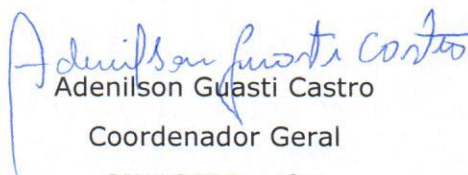 Adenilson Guasti Castro
Adenilson Guasti Castro
Coordenador Geral